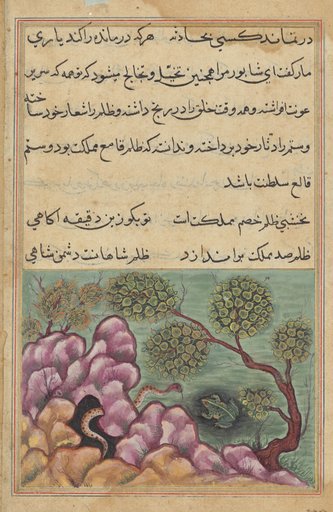 درنماند کسی بحادثه هرکه درمانده را کند یاری
مار گفت ای شاپور مرا همچنین تخیل و تخالج میشود که تو همه که سریر
عونت افراشته وهمه وقت خلق را در رنج داشته وظلم را شعار خود ساخته
وستم را دثار خود پرداخته وندانسته که ظلم قامع مملکت بود وستم
قالع سلطنت باشد
نخشبی ظلم خصم مملکت است تو بکوزین دقیقه آکاهی
ظلم صد مملکت براندازد ظلم شاهانست دشمن شاهی